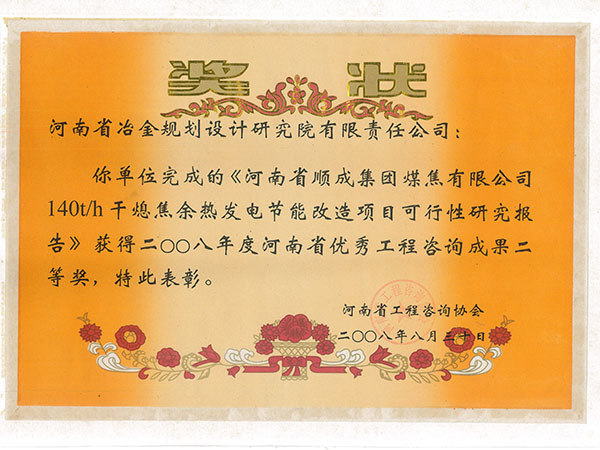 奖 状
河南省冶金规划设计研究院有限责任公司：
你单位完成的《河南省顺成集团煤焦有限公司
140t/h干熄焦余热发电节能改造项目可行性研究报
告》获得二〇〇八年度河南省优秀工程咨询成果二
等奖，特此表彰。
河南省工程咨询协会
二〇〇八年八月三十日